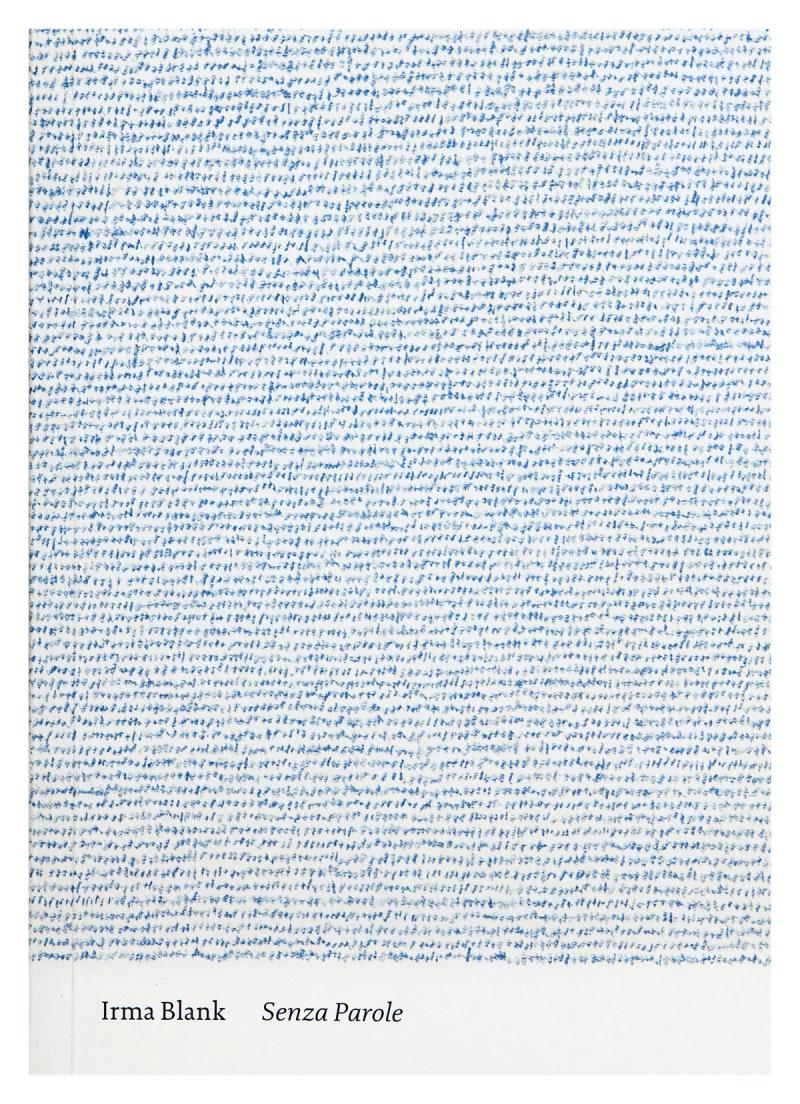 Irma Blank Senza Parole